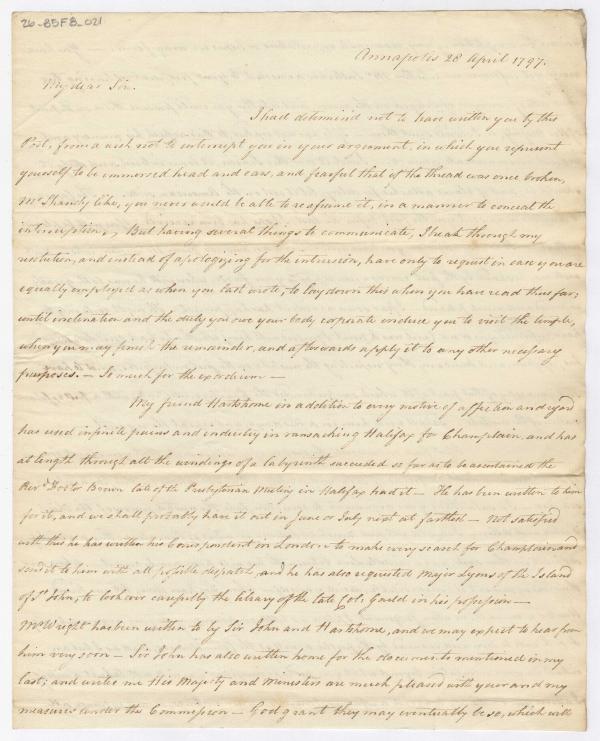 26-85F8_021
Annapolis 28 April 1797.
My dear Sir.
I had determin'd not to have written you by this
Post, from a wish not to interrupt you in your argument, in which you represent
yourself to be immersed head and ears, and fearful that if the thread was once broken,
Mr Shandy like, you never would be able to reassume it, in a manner to conceal the
interruption,, But having several things to communicate, I break through my
resolution, and instead of apologizing for the intrusion, have only to request in case you are
equally employed as when you last wrote, to lay down this when you have read thus far,
until inclination and the duty you owe your body corporate induce you to visit the temple,
when you may finish the remainder, and afterwards apply it to any other necessary
purposes. — So much for the exordium —
My friend Hartshorne in addition to every motive of affection and regard
has used infinite pains and industry in ransacking Halifax for Champlain, and has
at length through all the windings of a labyrinth succeeded so far as to be ascertained the
Revd. Doctor Brown late of the Presbyterian Meeting in Halifax had it — He has been written to him
for it, and we shall probably have it out in June or July next at farthest — Not satisfied
with this he has written his Correspondent in London to make every search for Champlain and
send it to him with all possible despatch, and he has also requested Major Lyons of the Island
of St. John, to look over carefully the library of the late Col. Gould in his possession —
Mr Wright has been written to by Sir John and Hartshorne, and we may expect to hear from
him very soon — Sir John has also written home for the documents mentioned in my
last; and writes me His Majesty and Ministers are much pleased with your and my
measures under the Commission — God grant they may eventually be so, which with